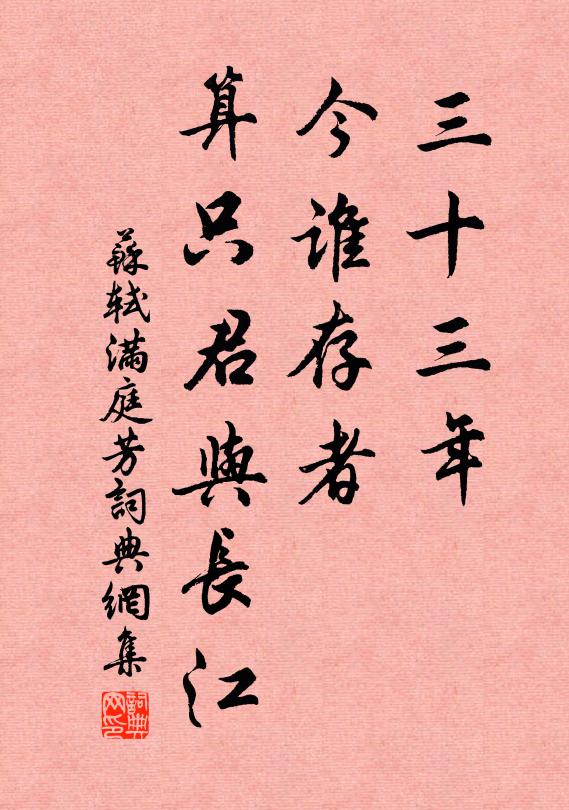 三十三年
今誰存者
算只君與長江
蘇軾滿庭芳詞典網集
詞典
网印